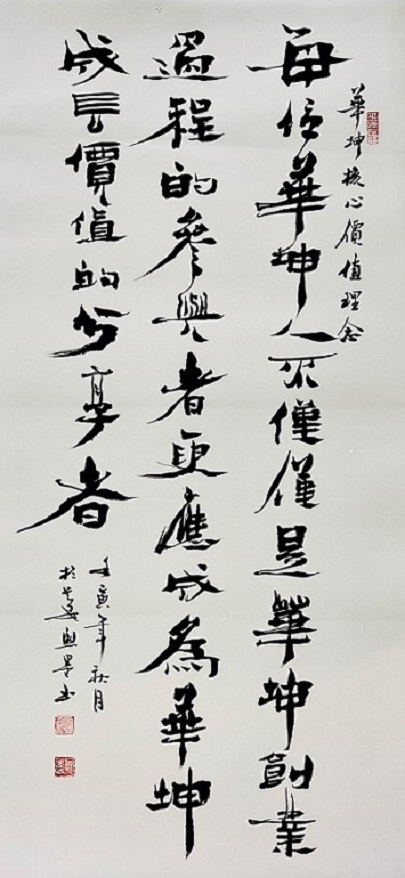 華坤核心價值理念
每位華坤人不僅僅是華坤創業
過程的參與者更應成為華坤
成長價值的分享者
壬寅年秋月
於長安興墨書